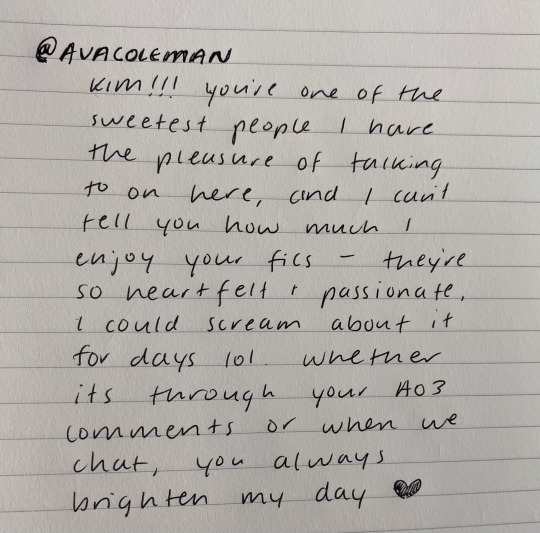 @AVACOLEMAN
KIM!!! you're one of the
sweetest people I have
the pleasure of talking
to on here, and I can't
tell you how much I
enjoy your fics - they're
so heartfelt & passionate,
I could scream about it
for days lol. whether
its through your AO3
comments or when we
chat, you always
brighten my day ♥